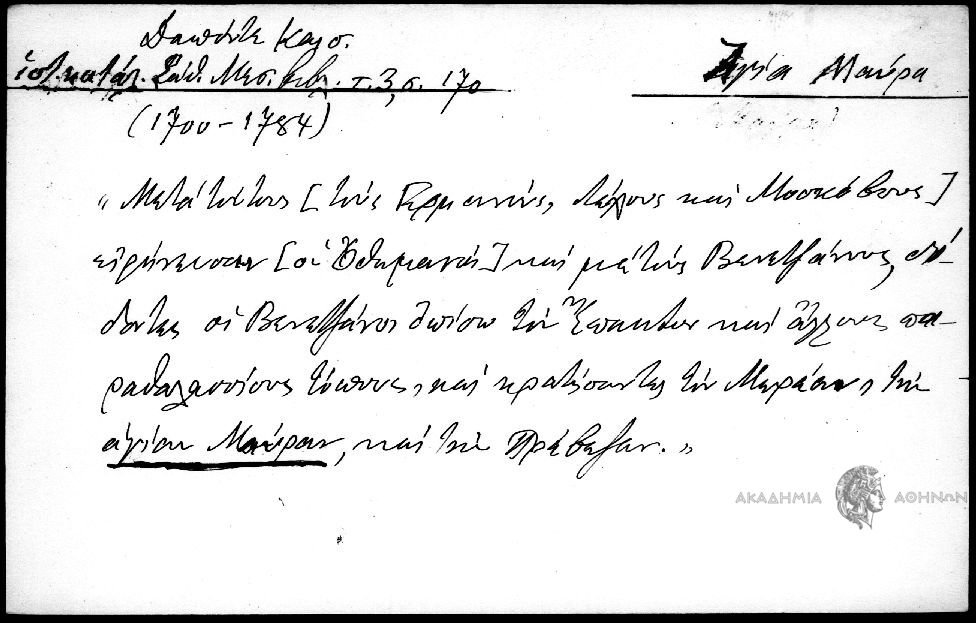 Δαπόντε Καισ.
ἱστ. κατάλ. Σάθ. Μεσ. βιβ. τ. 3, σ. 170
Ἁγία Μαύρα
(1700-1784)
"Μετὰ τούτους [τοὺς Γερμανούς, Λέχους καὶ Μοσκόβους]
εἰρήνευσαν [οἱ Ὀθωμανοὶ] καὶ μὲ τοὺς Βενετζάνους, δί-
δοντες οἱ Βενετζάνοι ὀπίσω τὸν Ἔπακτον καὶ ἄλλους πα-
ραθαλασσίους τόπους, καὶ κρατήσαντες τὸν Μορέαν, τὴν
ἁγίαν Μαύραν, καὶ τὴν Πρέβεζαν."
ΑΚΑΔΗΜΙΑ ΑΘΗΝΩΝ